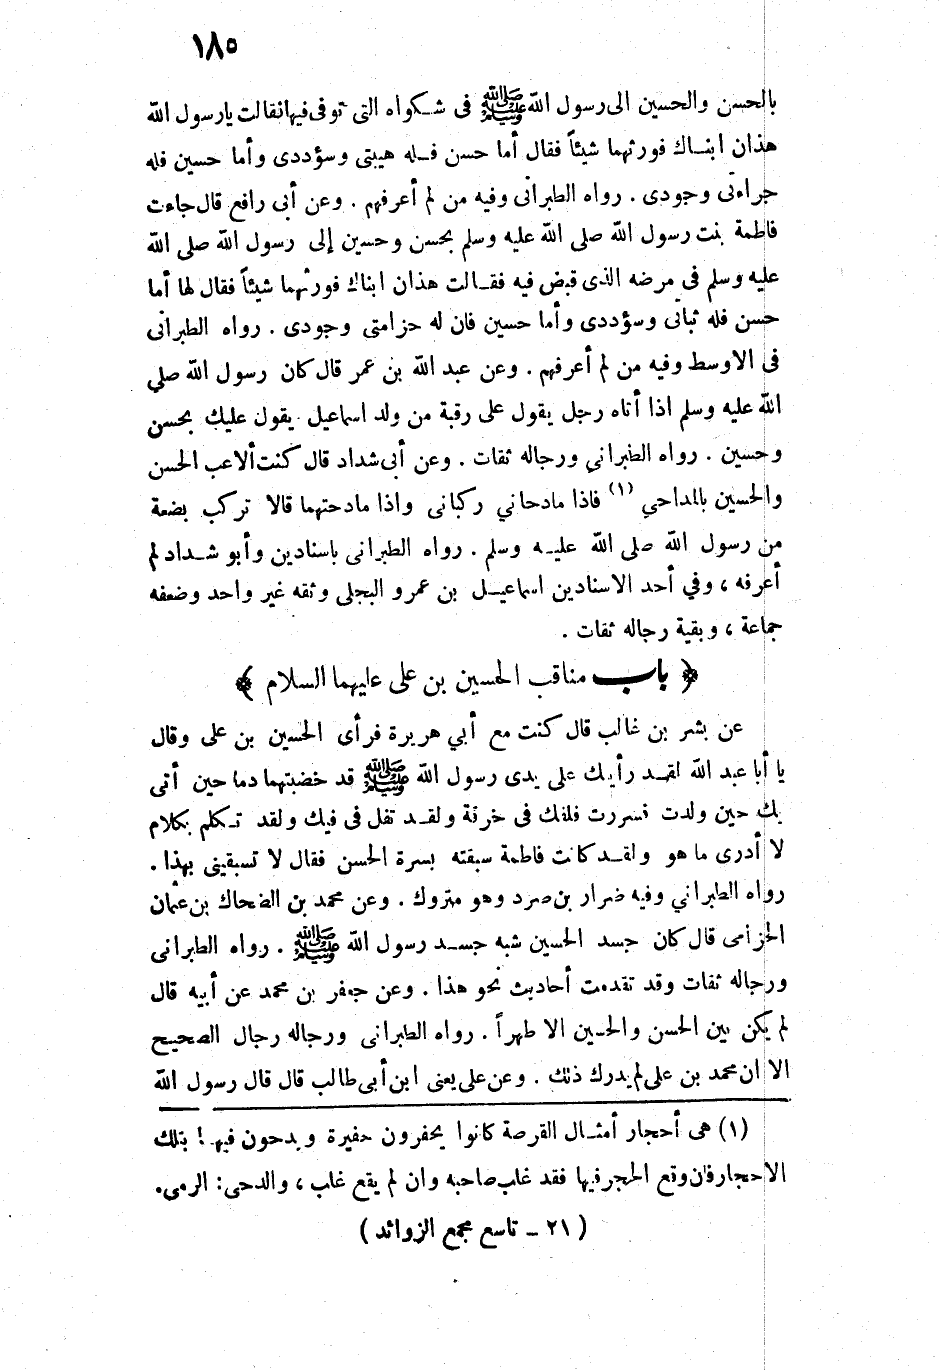 ١٨٥
بالحسن والحسين الى رسول الله ﷺ فى شكواه التى توفى فيها فقالت يارسول الله
هذان ابناك فورثهما شيئاً فقال أما حسن فله هيبتى وسؤددى وأما حسين فله
جراءتى وجودى . رواه الطبرانى وفيه من لم أعرفهم . وعن أبى رافع قال جاءت
فاطمة بنت رسول الله صلى الله عليه وسلم بحسن وحسين إلى رسول الله صلى الله
عليه وسلم فى مرضه الذى قبض فيه فقالت هذان ابناك فورثهما شيئاً فقال لها أما
حسن فله ثباتى وسؤددى وأما حسين فان له حزامتى وجودى . رواه الطبرانى
فى الاوسط وفيه من لم أعرفهم . وعن عبد الله بن عمر قال كان رسول الله صلي
الله عليه وسلم اذا أتاه رجل يقول على رقبة من ولد اسماعيل يقول عليك بحسن
وحسين . رواه الطبراني ورجاله ثقات . وعن أبى شداد قال كنت ألاعب الحسن
والحسين بالمداحي (١) فاذا مادحاني ركبانى واذا مادحتهما قالا تركب بضعة
من رسول الله صلى الله عليه وسلم . رواه الطبرانى باسنادين وأبو شداد لم
أعرفه ، وفي أحد الاسنادين اسماعيل بن عمرو البجلى وثقه غير واحد وضعفه
جماعة ، وبقية رجاله ثقات .
﴿ باب مناقب الحسين بن على عليهما السلام ﴾
عن بشر بن غالب قال كنت مع أبي هريرة فرأى الحسين بن على وقال
يا أبا عبد الله لقد رأيتك على يدى رسول الله ﷺ قد خضبتهما دما حين أتى
بك حين ولدت فسررت فلفتك فى خرقة ولقد تفل فى فيك ولقد تكلم بكلام
لا أدرى ما هو ولقد كانت فاطمة سبقته بسرة الحسن فقال لا تسبقينى بهذا .
رواه الطبراني وفيه ضرار بن صرد وهو متروك . وعن محمد بن الضحاك بن عثمان
الحزامى قال كان جسد الحسين شبه جسد رسول الله ﷺ . رواه الطبرانى
ورجاله ثقات وقد تقدمت أحاديث نحو هذا . وعن جعفر بن محمد عن أبيه قال
لم يكن بين الحسن والحسين الا طهراً . رواه الطبرانى ورجاله رجال الصحيح
الا ان محمد بن على لم يدرك ذلك . وعن على يعنى ابن أبى طالب قال قال رسول الله
(١) هى أحجار أمثال القرصة كانوا يحفرون حفيرة ويدحون فيها بتلك
الاحجار فان وقع الحجر فيها فقد غلب صاحبه وان لم يقع غلب ، والدحى: الرمى.
( ٢١ ــ تاسع مجمع الزوائد )